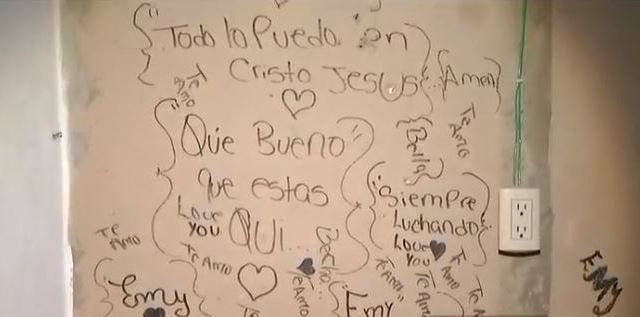 "Todo lo Puedo en
Cristo Jesus
Amen
Te
Amo
"Que Bueno"
que estas
QUI...
Love
You
Te
Amo
Bella
"Siempre
Luchando
Love
You
Te
Amo
Te Amo
Te Amo
Te Amo"
Te Amo
Te
Amo
Te
Emy
Emy
EMY